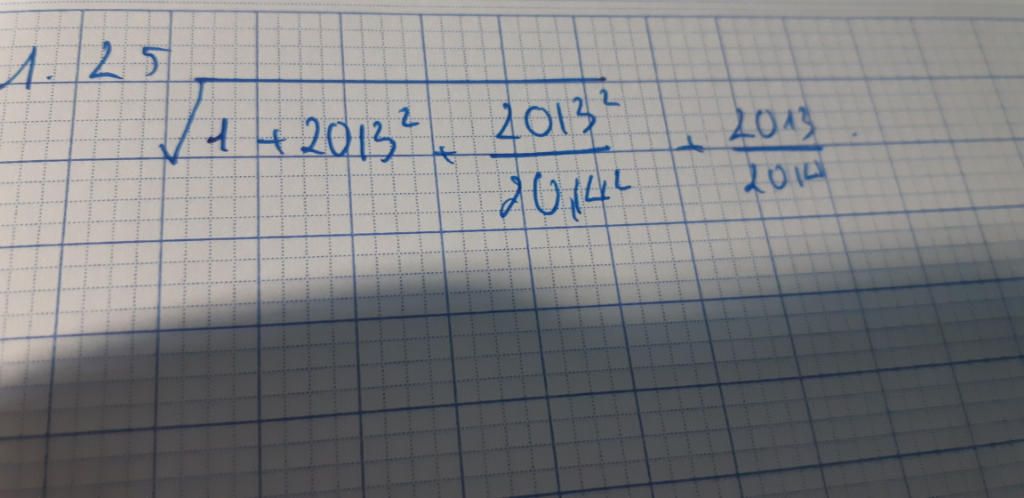 1. 25
√1 + 2013² + 2013²/2014² + 2013/2014.